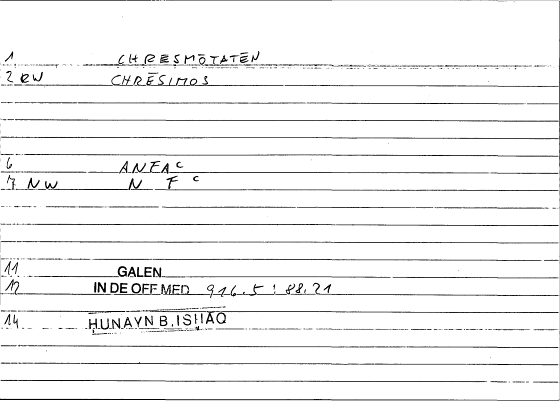 1 CHRESMŌTATĒN
2 RW CHRĒSIMOS
6 ANFAᶜ
7 NW N F ᶜ
11 GALEN
12 IN DE OFF MED 916.5 : 88.21
14 ḤUNAYN B. ISḤĀQ